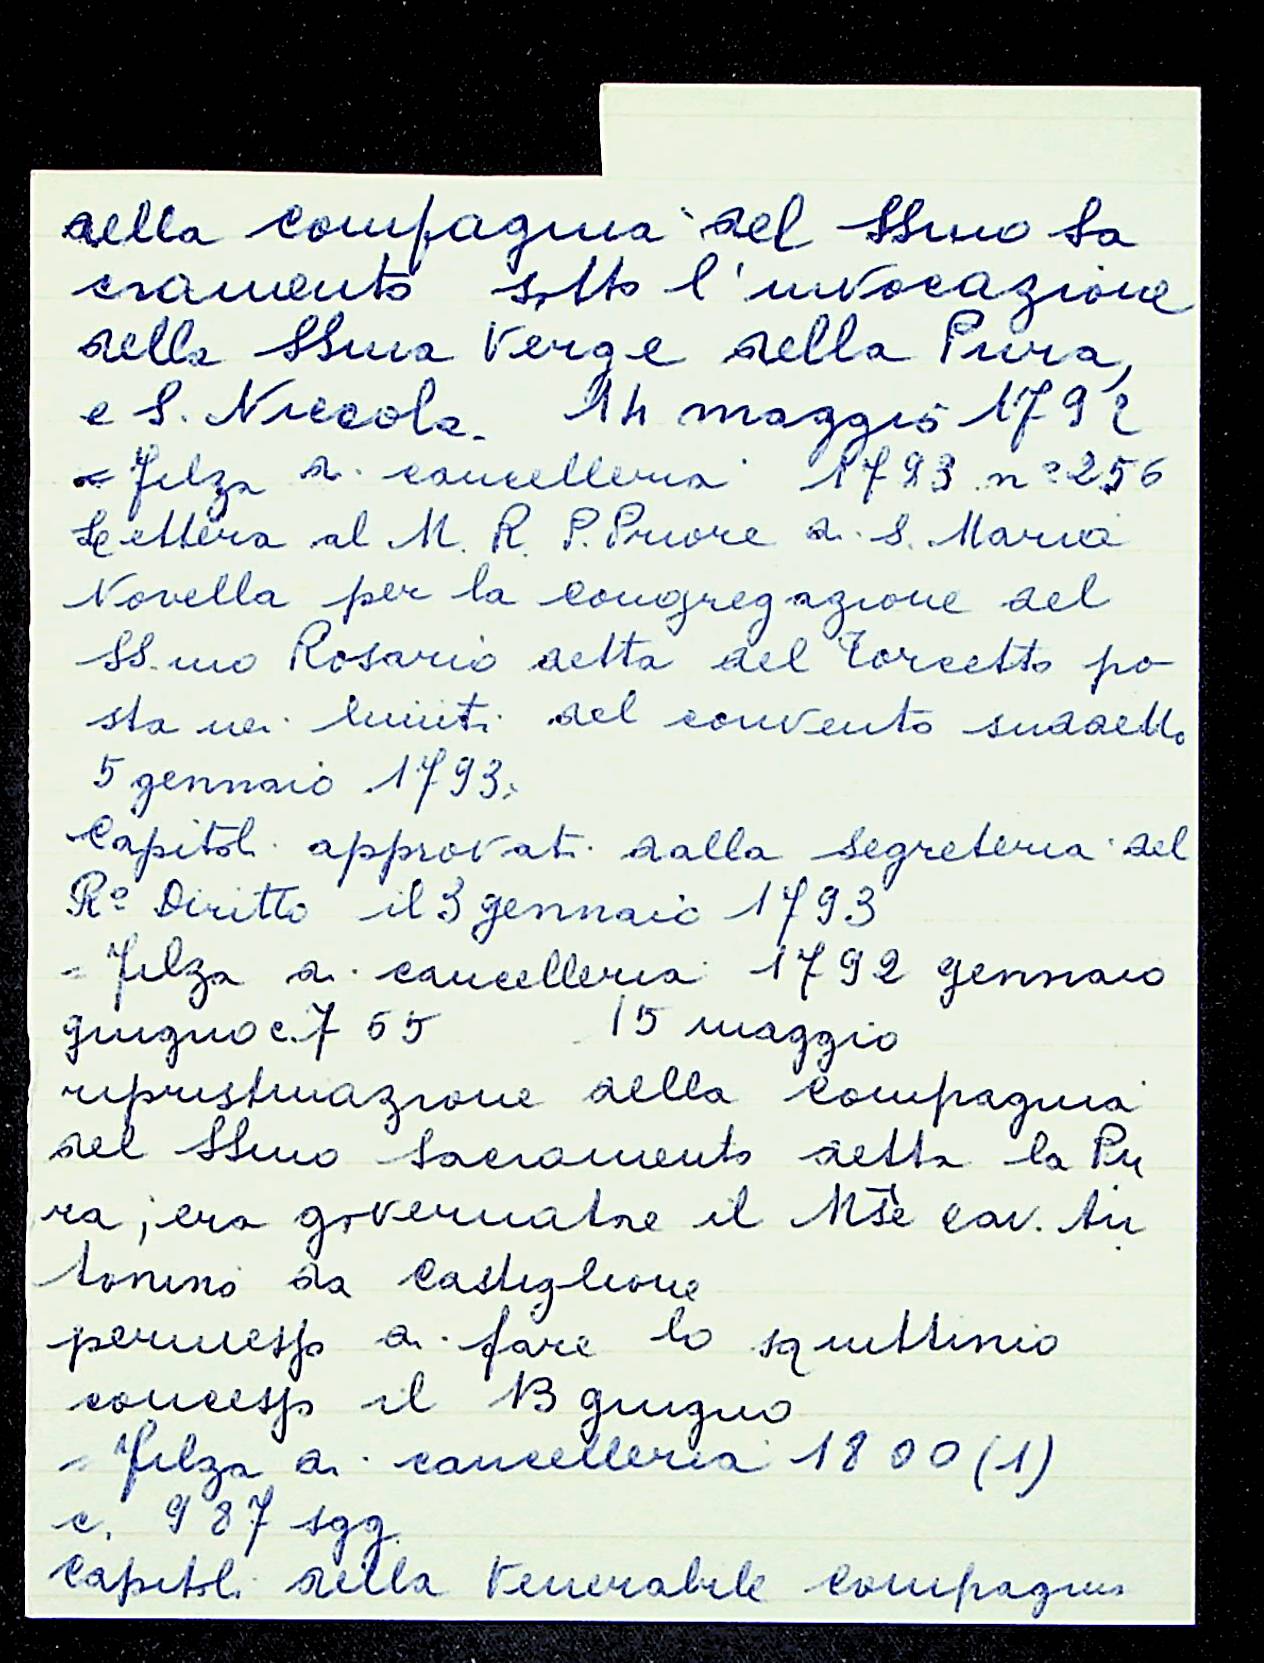 della compagnia del SSmo Sa
cramento sotto l'invocazione
della SSma Verge della Pura,
e S. Niccola. 14 maggio 1792
= Filza di cancelleria 1793 n° 256
Lettera al M. R. P. Priore di S. Maria
Novella per la congregazione del
SS.mo Rosario detta del Torcetto po-
sta nei limiti del convento suddetto
5 gennaio 1793.
Capitoli approvati dalla segreteria del
R° Diritto il 3 gennaio 1793
= Filza di cancelleria 1792 gennaio
giugno c. 755 15 maggio
ripristinazione della compagnia
del SSmo Sacramento detta la Pu
ra; era governatore il Mse cav. An
tonino da Castiglione
permesso di fare lo squittinio
concesso il 13 giugno
= Filza di cancelleria 1800 (1)
c. 987 sgg.
Capitoli della Venerabile compagnia